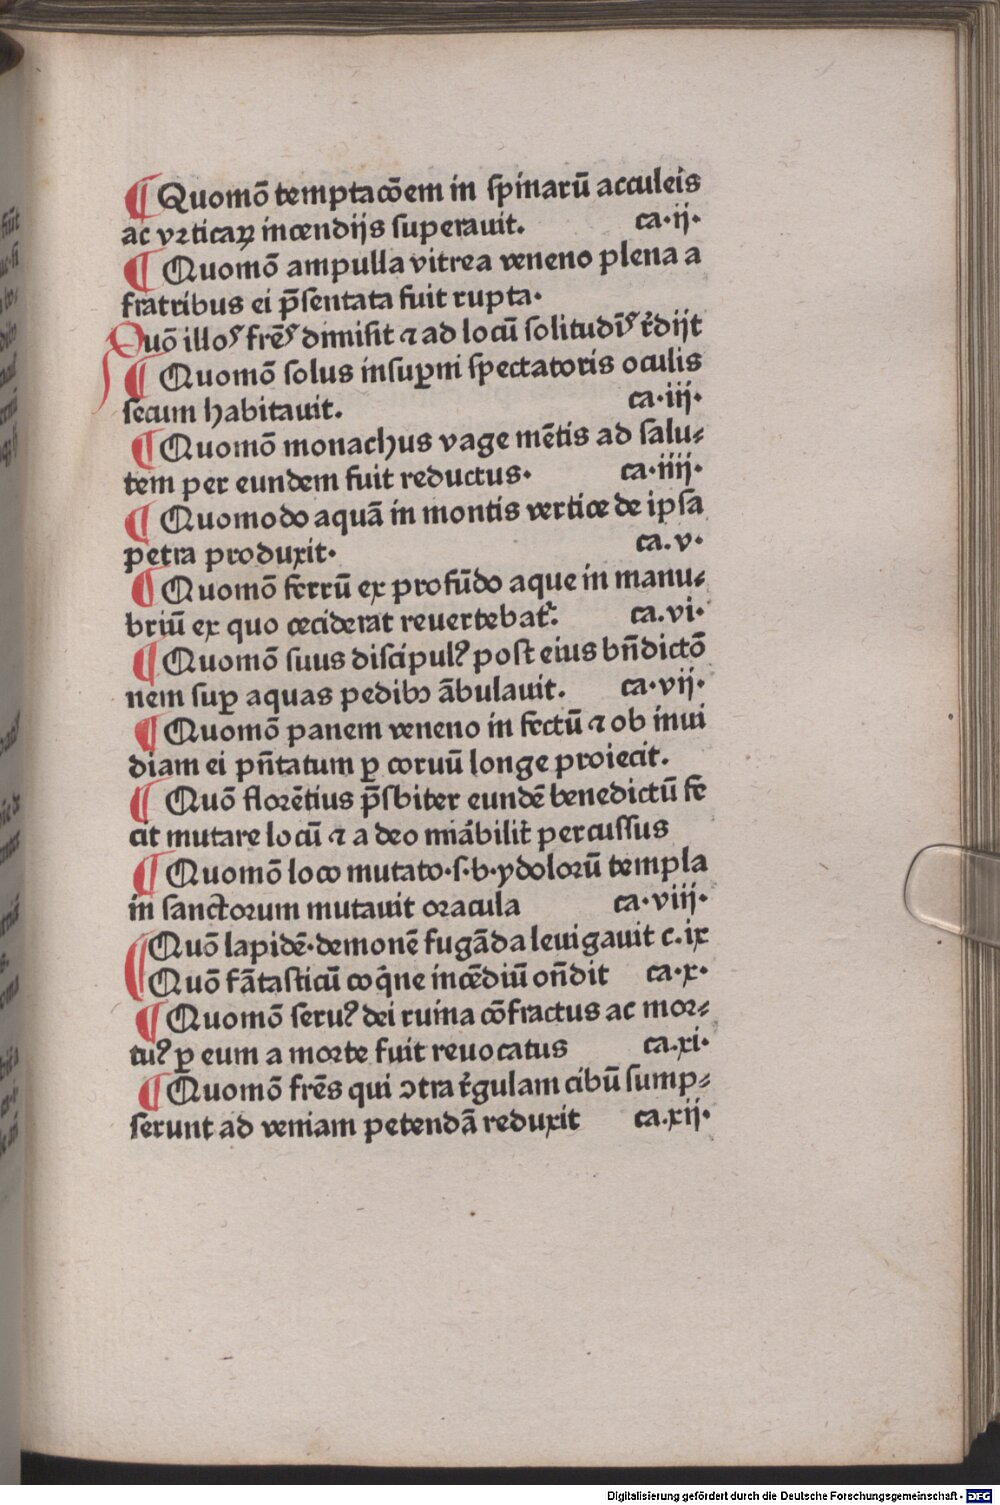 ¶ Quomõ temptacõem in spinarũ acculeis
ac vrticaꝝ incendijs superauit. ca·ij·
¶ Quomõ ampulla vitrea veneno plena a
fratribus ei p̃sentata fuit rupta·
Quõ illoꝰ frẽꝰ dimisit ⁊ ad locũ solitudĩꝰ r̃dijt
¶ Quomõ solus insuꝑni spectatoris oculis
secum habitauit. ca·iij·
¶ Quomõ monachus vage mẽtis ad salu⸗
tem per eundem fuit reductus· ca·iiij·
¶ Quomodo aquã in montis vertice de ipsa
petra produxit· ca.v·
¶ Quomõ ferrũ ex profũdo aque in manu⸗
briũ ex quo ceciderat reuertebat̃. ca.vi·
¶ Quomõ suus discipulꝰ post eius bñdictõ
nem suꝑ aquas pedibꝫ ãbulauit. ca·vij·
¶ Quomõ panem veneno in fectũ ⁊ ob inui
diam ei pñtatum ꝑ coruũ longe proiecit.
¶ Quõ florẽtius p̃sbiter eundẽ benedictũ fe
cit mutare locũ ⁊ a deo miãbilit̃ percussus
¶ Quomõ loco mutato·s·b·ydolorũ templa
in sanctorum mutauit oracula ca·viij·
¶ Quõ lapidẽ·demonẽ fugãda leuigauit c.ix
Quõ fãtasticũ coq̃ne incẽdiũ oñdit ca·x·
¶ Quomõ seruꝰ dei ruina cõfractus ac mor⸗
tuꝰ ꝑ eum a morte fuit reuocatus ca.xi·
¶ Quomõ frẽs qui ↄtra r̃gulam cibũ sump⸗
serunt ad veniam petendã reduxit ca.xij·
Digitalisierung gefördert durch die Deutsche Forschungsgemeinschaft - DFG